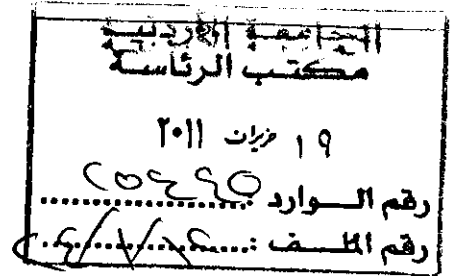 الجامعة الاردنية
مكتب الرئاسة
١٩ حزيران ٢٠١١
رقم الـــوارد
رقم الملـــف :